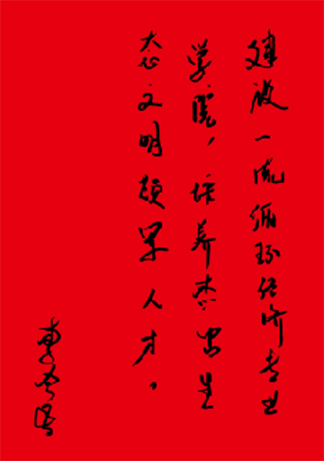 建设一流循环经济专业
学院，培养杰出生
态文明领军人才。